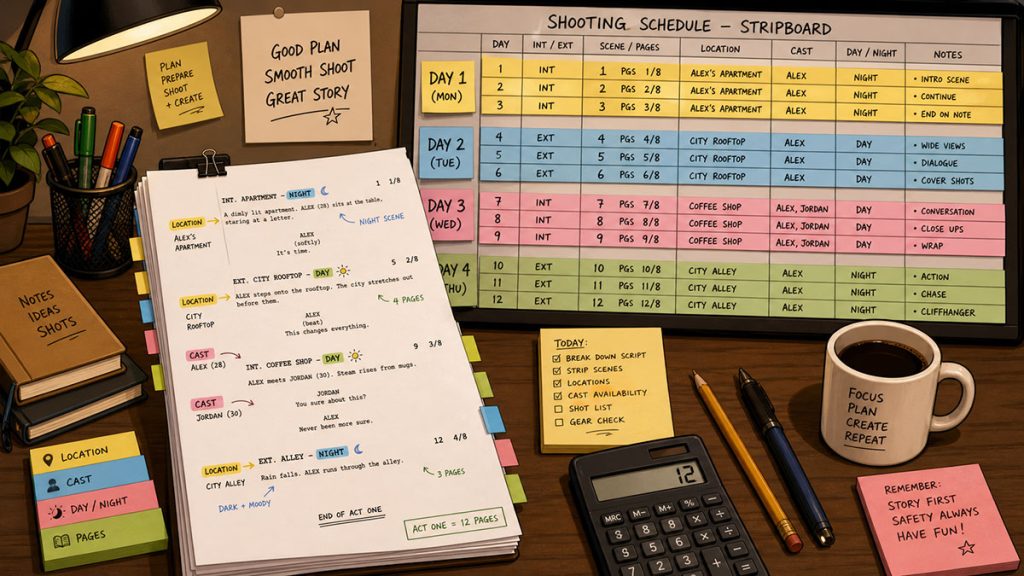 PLAN
PREPARE
SHOOT
+ CREATE
GOOD PLAN
SMOOTH SHOOT
GREAT STORY
SHOOTING SCHEDULE – STRIPBOARD
DAY INT / EXT SCENE / PAGES LOCATION CAST DAY / NIGHT NOTES
DAY 1
(MON)
1 INT 1 PGS 1/8 ALEX'S APARTMENT ALEX NIGHT • INTRO SCENE
2 INT 2 PGS 2/8 ALEX'S APARTMENT ALEX NIGHT • CONTINUE
3 INT 3 PGS 3/8 ALEX'S APARTMENT ALEX NIGHT • END ON NOTE
DAY 2
(TUE)
4 EXT 4 PGS 4/8 CITY ROOFTOP ALEX DAY • WIDE VIEWS
5 EXT 5 PGS 5/8 CITY ROOFTOP ALEX DAY • DIALOGUE
6 EXT 6 PGS 6/8 CITY ROOFTOP ALEX DAY • COVER SHOTS
DAY 3
(WED)
7 INT 7 PGS 7/8 COFFEE SHOP ALEX, JORDAN DAY • CONVERSATION
8 INT 8 PGS 8/8 COFFEE SHOP ALEX, JORDAN DAY • CLOSE UPS
9 INT 9 PGS 9/8 COFFEE SHOP ALEX, JORDAN DAY • WRAP
DAY 4
THU)
10 EXT 10 PGS 10/8 CITY ALLEY ALEX NIGHT • ACTION
11 EXT 11 PGS 11/8 CITY ALLEY ALEX NIGHT • CHASE
12 EXT 12 PGS 12/8 CITY ALLEY ALEX NIGHT • CLIFFHANGER
INT. APARTMENT – NIGHT 1 1/8
A dimly lit apartment. ALEX (28) sits at the table,
staring at a letter.
LOCATION
ALEX'S
APARTMENT
NIGHT SCENE
ALEX
(softly)
It's time.
EXT. CITY ROOFTOP – DAY 5 2/8
LOCATION
ALEX steps onto the rooftop. The city stretches out
before them.
CITY
ROOFTOP
4 PAGES
ALEX
(beat)
This changes everything.
CAST
ALEX (28)
INT. COFFEE SHOP – DAY 9 3/8
ALEX meets JORDAN (30). Steam rises from mugs.
CAST
JORDAN (30)
JORDAN
You sure about this?
ALEX
Never been more sure.
EXT. ALLEY – NIGHT 12 4/8
LOCATION
CITY ALLEY
Rain falls. ALEX runs through the alley.
DARK + MOODY
3 PAGES
END OF ACT ONE
ACT ONE = 12 PAGES
NOTES
IDEAS
SHOTS
LOCATION
CAST
DAY / NIGHT
PAGES
TODAY:
BREAK DOWN SCRIPT
STRIP SCENES
LOCATIONS
CAST AVAILABILITY
SHOT LIST
GEAR CHECK
12
MRC M- M+ %
FOCUS
PLAN
CREATE
REPEAT
REMEMBER:
STORY FIRST
SAFETY ALWAYS
HAVE FUN!